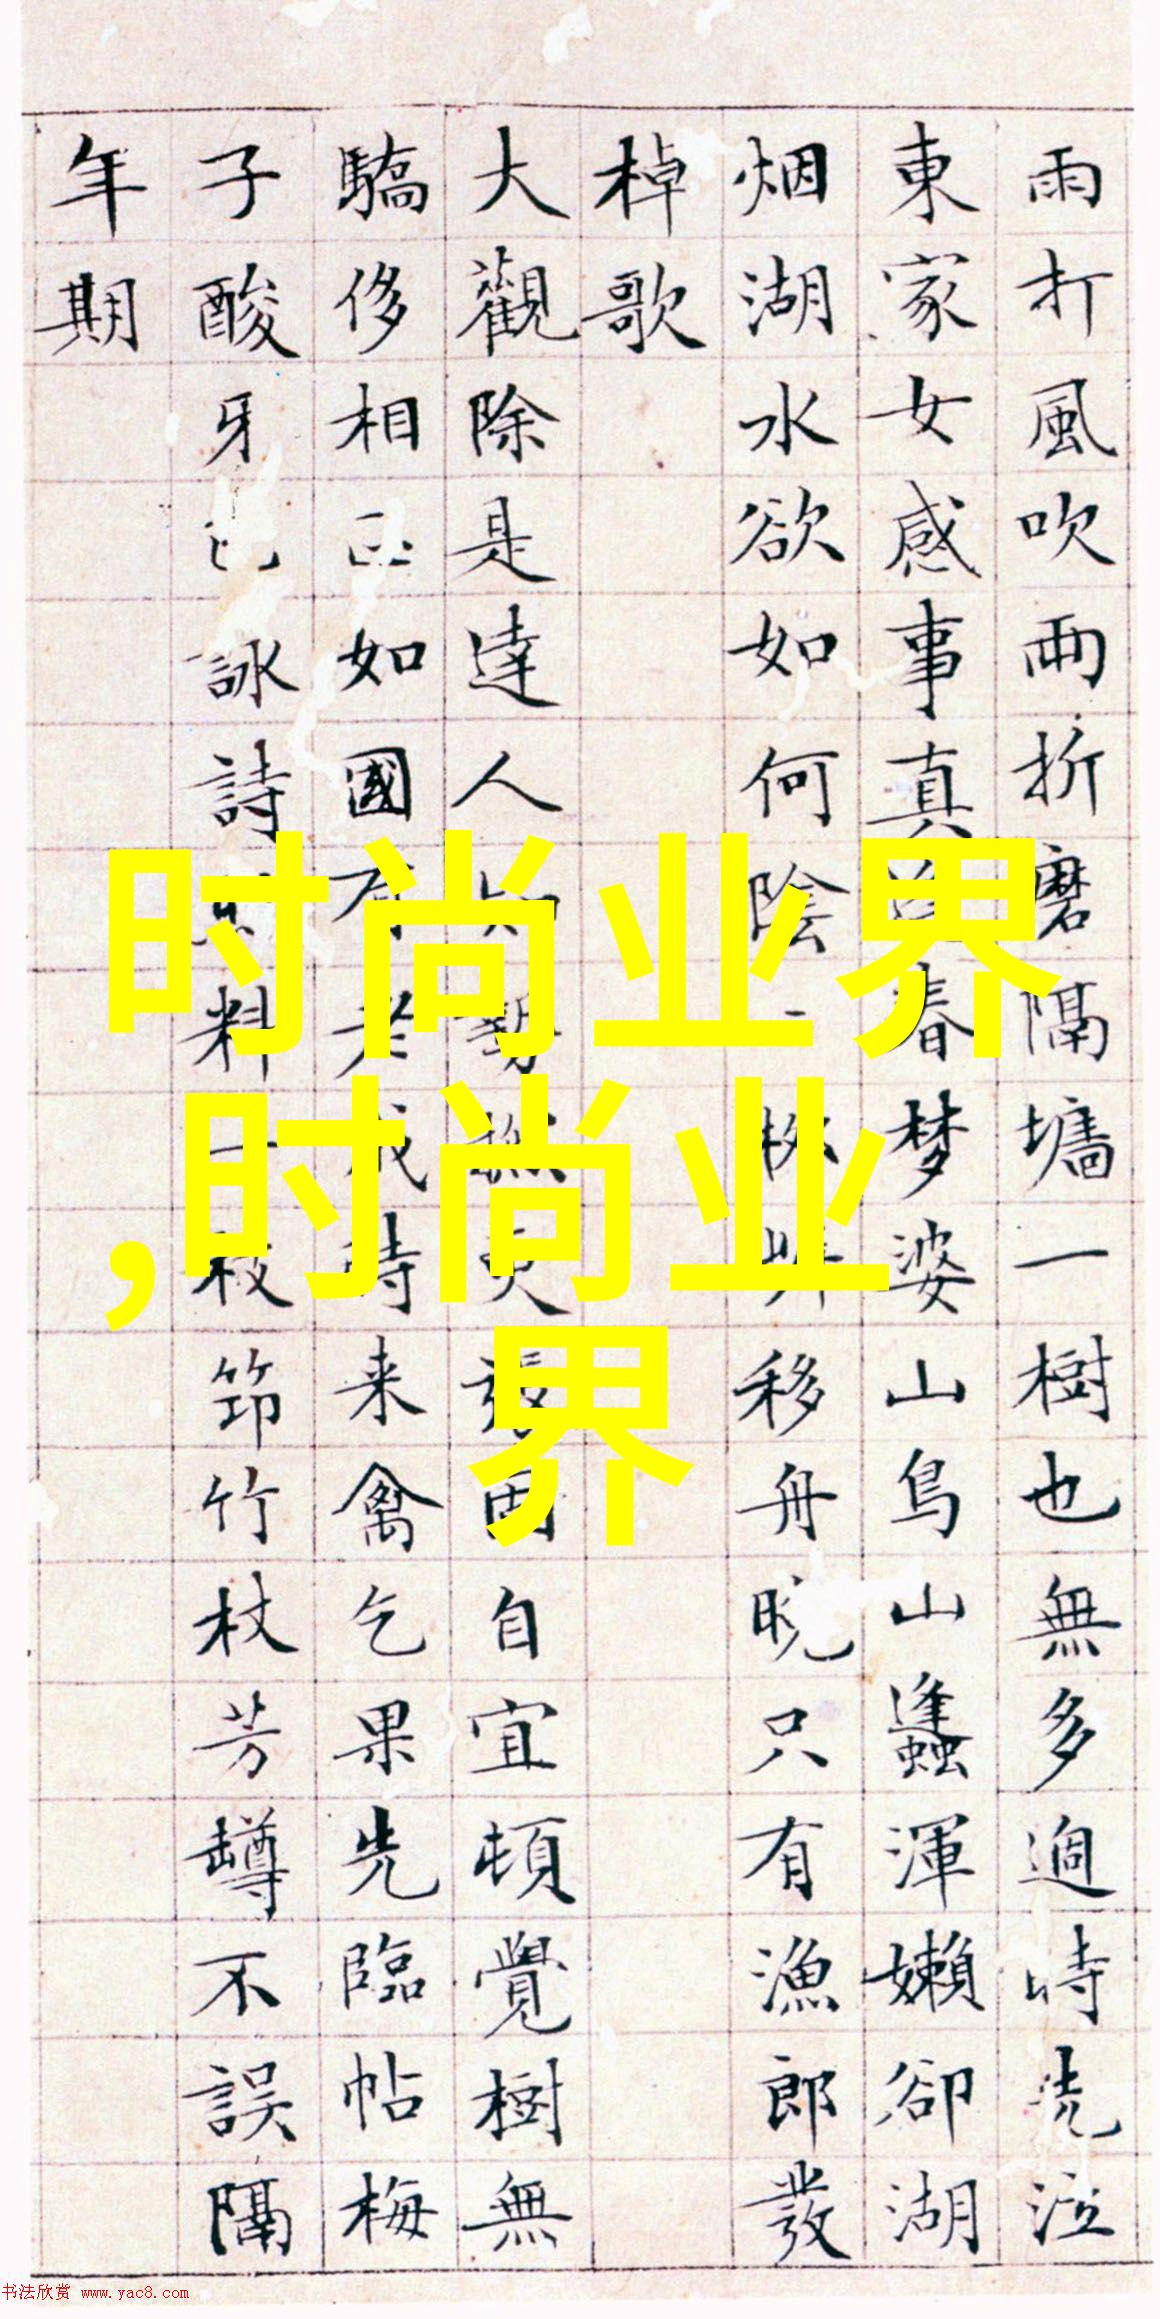 雨打風吹兩折磨隔墻一樹也無多過時洗泣
東家女感事真春梦婆山鳥山蟲渾嬾卻湖
烟湖水欲如何陰移舟晚只有漁郎發
棹歌
大觀除是達人自宜頓覺樹無
驕侈相如國有老成時来禽乞果先臨帖梅
子酸牙詠詩料一枝笻竹杖芳罇不誤隔
年期
时尚业界
,时尚业
界
书法欣赏 www.yac8.com